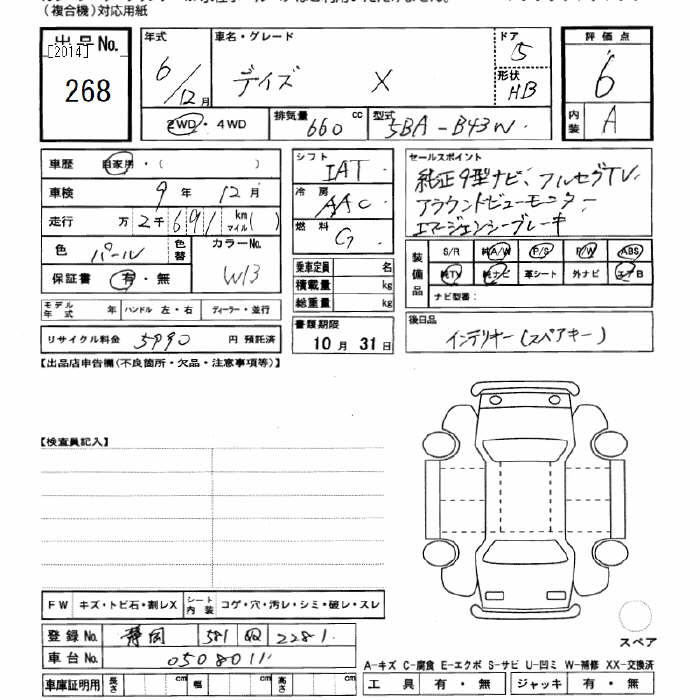 （複合機）対応用紙
出品No.
[2014]
268
年式
6/12月
車名・グレード
デイズ X
ドア
5
形状
HB
評価点
6
内装
A
2WD・4WD
排気量 660 cc
型式 5BA-B43W
車歴 自家用・（ ）
車検 9年 12月
走行 万2千691 km マイル（ ）
色 パール 色替
カラーNo. W13
保証書 有・無
モデル年式 年 ハンドル 左・右 ディーラー・並行
リサイクル料金 5990 円 預託済
シフト IAT
冷房 AAC
燃料 G
乗車定員 名
積載量 kg
総重量 kg
書類期限
10月31日
セールスポイント
純正9型ナビ、フルセグTV、
アラウンドビューモニター
エマージェンシーブレーキ
装備品
S/R 純A/W P/S P/W ABS
純TV 純ナビ 革シート 外ナビ エアB
ナビ型番：
後日品
インテリキー（スペアキー）
【出品店申告欄(不良箇所・欠品・注意事項等)】
【検査員記入】
FW キズ・トビ石・割レX シート内装 コゲ・穴・汚レ・シミ・破レ・スレ
登録No. 静岡 581 2281
車台No. 0508011
車庫証明用 長さ cm 幅 cm 高さ cm
スペア
A-キズ C-腐食 E-エクボ S-サビ U-凹ミ W-補修 XX-交換済
工具 有・無 ジャッキ 有・無